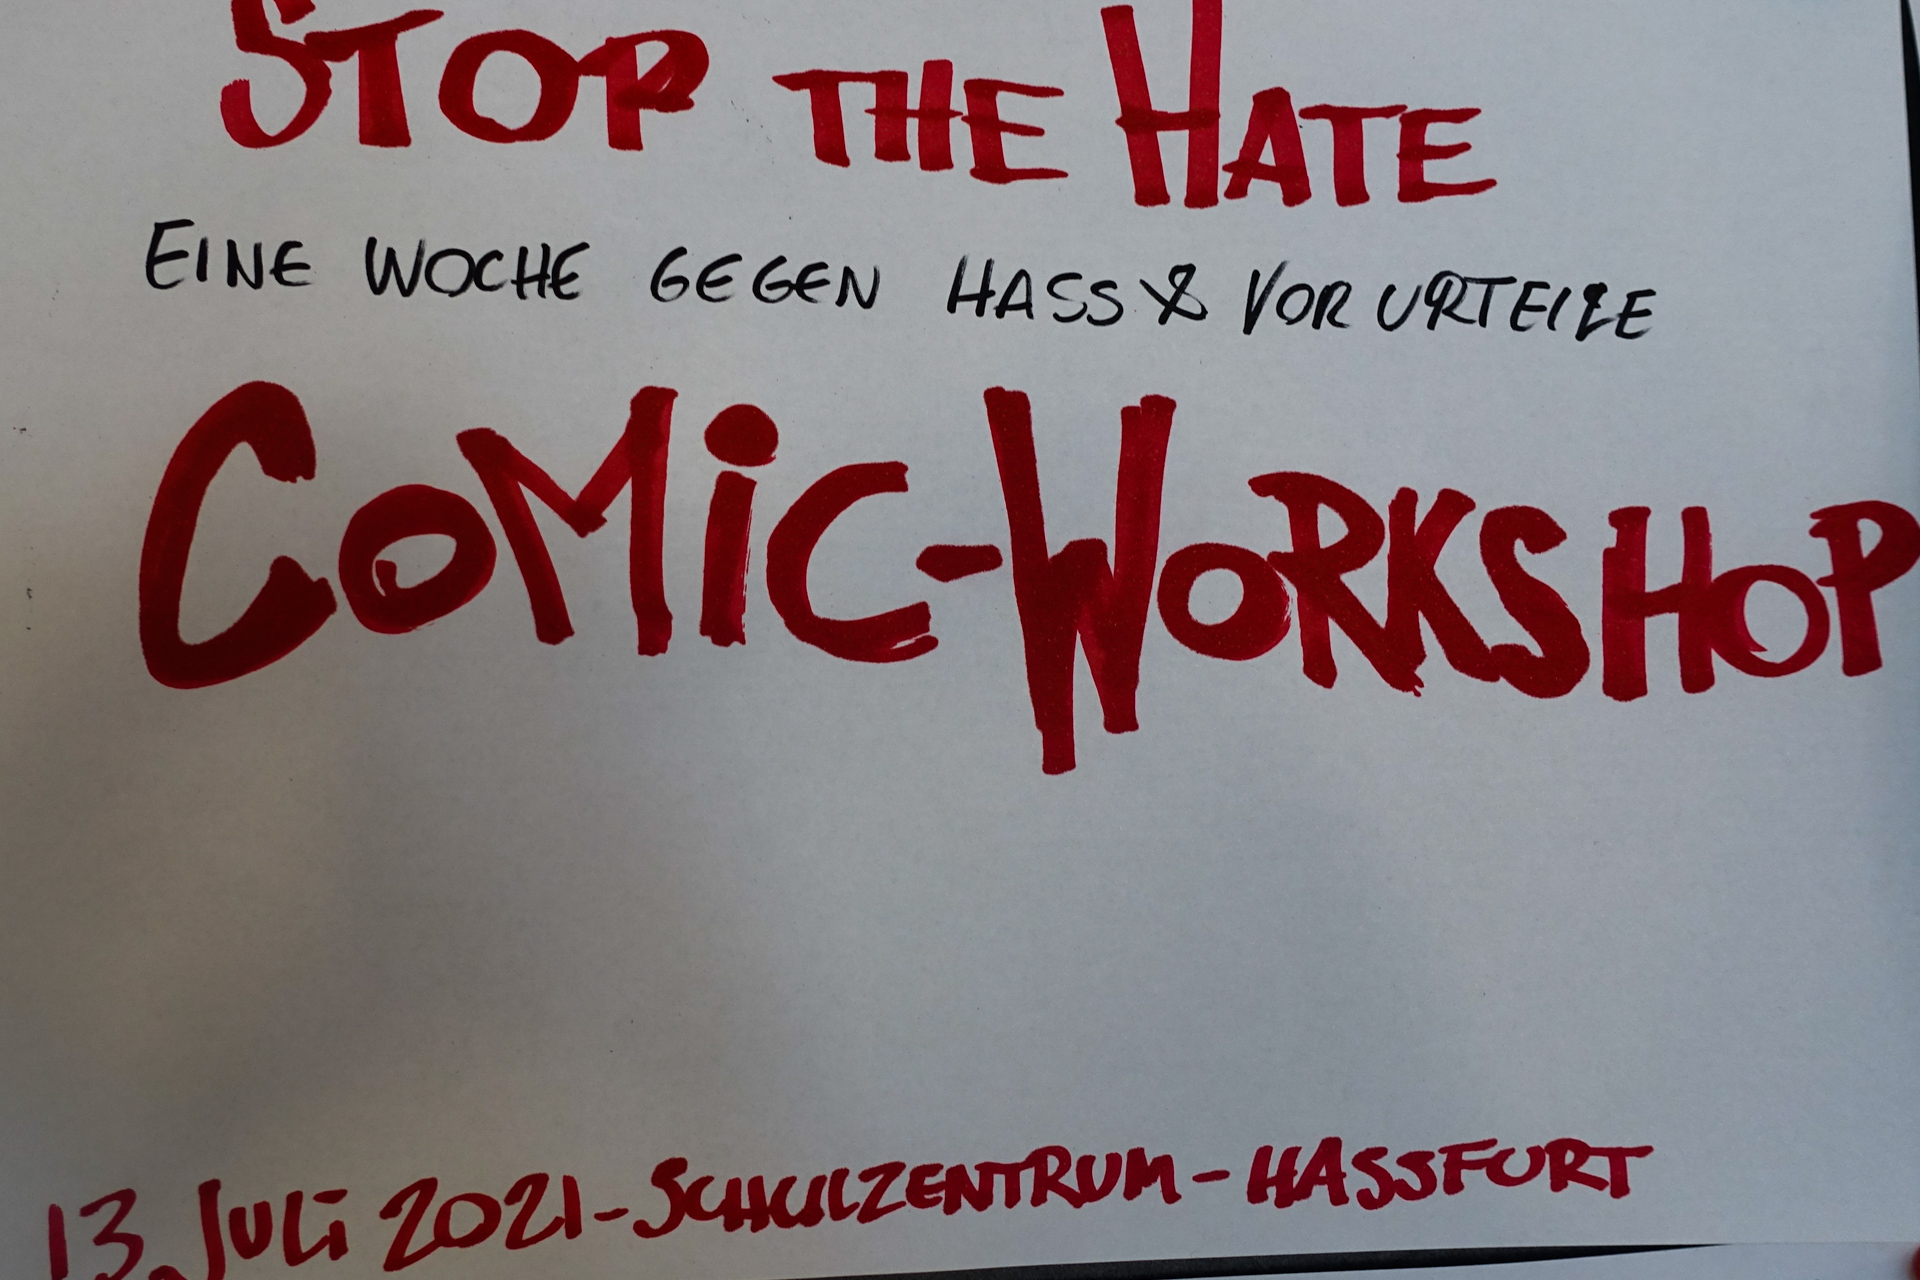 STOP THE HATE
EINE WOCHE GEGEN HASS & VORURTEILE
COMiC-WORKSHOP
13. JULi 2021-SCHULZENTRUM-HASSFURT